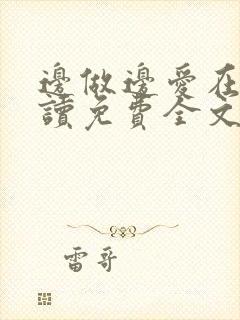 邊做邊愛在
讀免費全文
雷哥